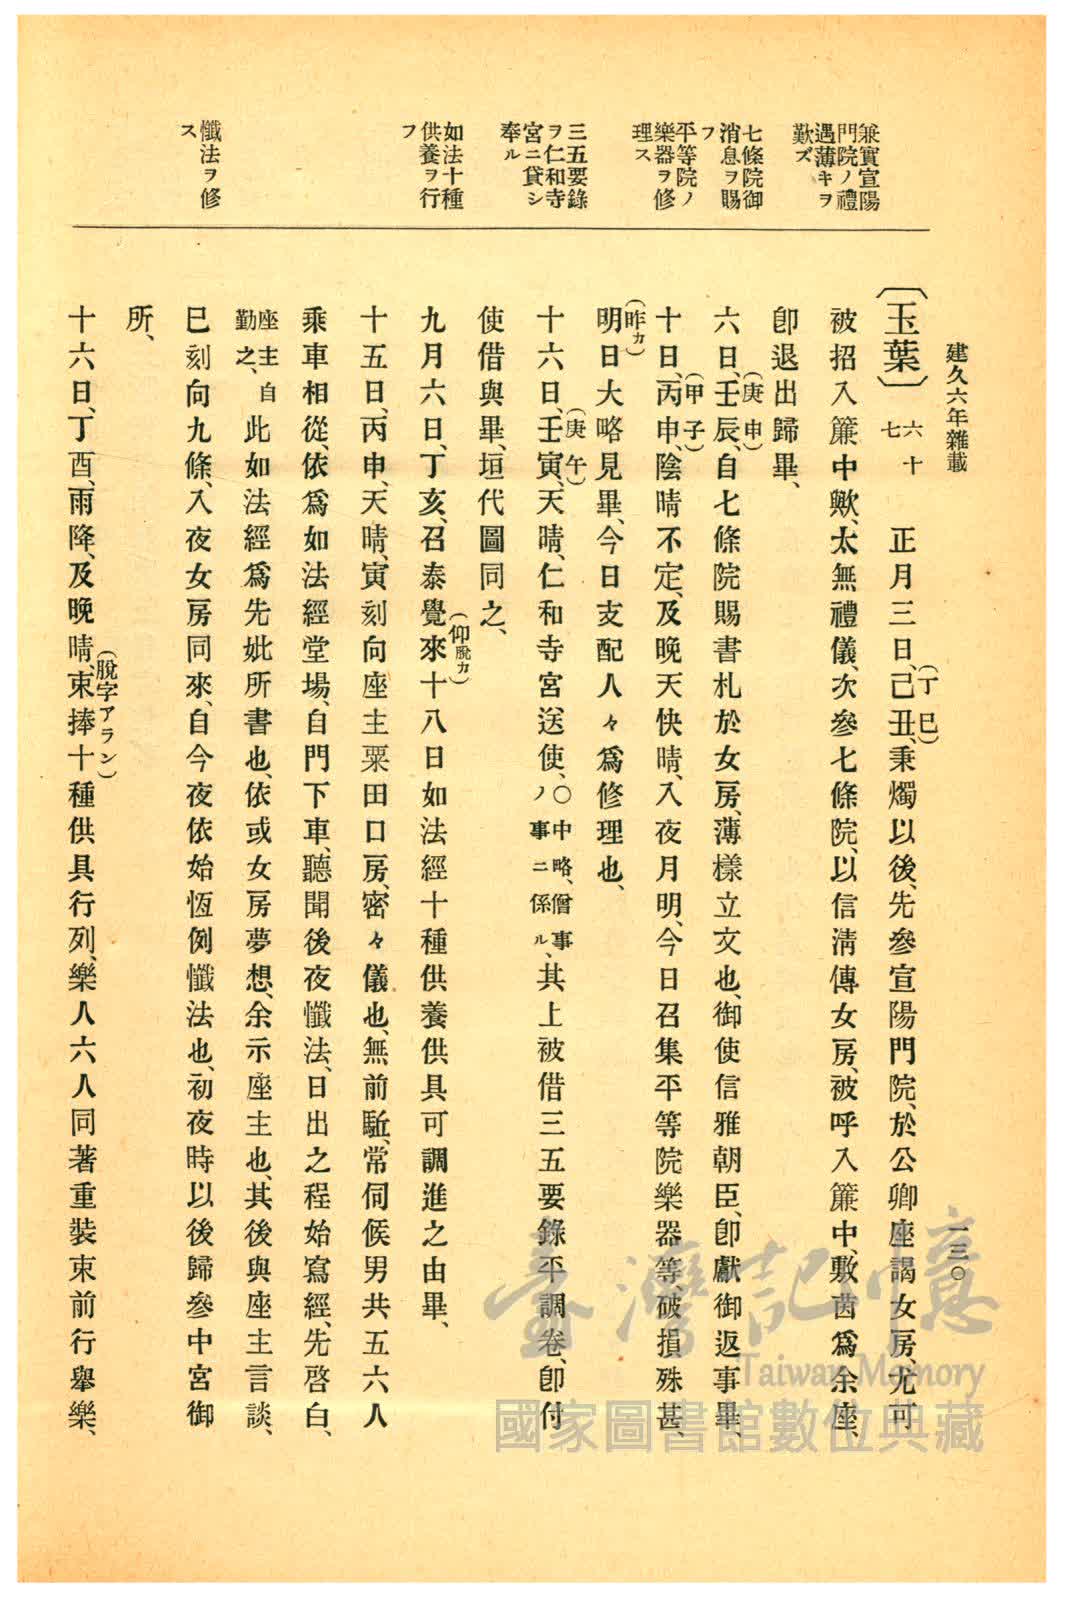 建久六年雜載
一三〇
兼實宣陽
門院ノ禮
遇薄キヲ
歎ズ
七條院御
消息ヲ賜
フ
平等院ノ
樂器ヲ修
理ス
三五要錄
ヲ仁和寺
宮ニ貸シ
奉ル
如法十種
供養ヲ行
フ
懺法ヲ修
ス
〔玉葉〕六十七 正月三日、己丑、(丁巳)秉燭以後、先參宣陽門院、於公卿座謁女房、尤可
被招入簾中歟、太無禮儀、次參七條院、以信淸傳女房、被呼入簾中、敷茵爲余座、
卽退出歸畢、
六日、壬辰、(庚申)自七條院賜書札於女房、薄樣立文也、御使信雅朝臣、卽獻御返事畢、
十日、丙申、(甲子)陰晴不定、及晚天快晴、入夜月明、今日召集平等院樂器等、破損殊甚、
明(昨カ)日大略見畢、今日支配人々爲修理也、
十六日、壬寅、(庚午)天晴、仁和寺宮、送使、〇中略、僧事ノ事ニ係ル、其上被借三五要錄平調卷、卽付
使借與畢、垣代圖同之、
九月六日、丁亥、召泰覺來(仰脫カ)十八日如法經十種供養供具可調進之由畢、
十五日、丙申、天晴、寅刻向座主粟田口房、密々儀也、無前駈、常伺候男共五六人
乘車相從、依爲如法經堂場、自門下車、聽聞後夜懺法、日出之程始寫經、先啓白、
座主自勤之、此如法經爲先妣所書也、依或女房夢想、余示座主也、其後與座主言談、
巳刻向九條、入夜女房同來、自今夜依始恆例懺法也、初夜時以後歸參中宮御
所、
十六日、丁酉、雨降、及晚晴、東(脫字アラン)捧十種供具行列、樂人六人同著重裝束前行擧樂、
臺灣記憶
Taiwan Memory
國家圖書館數位典藏